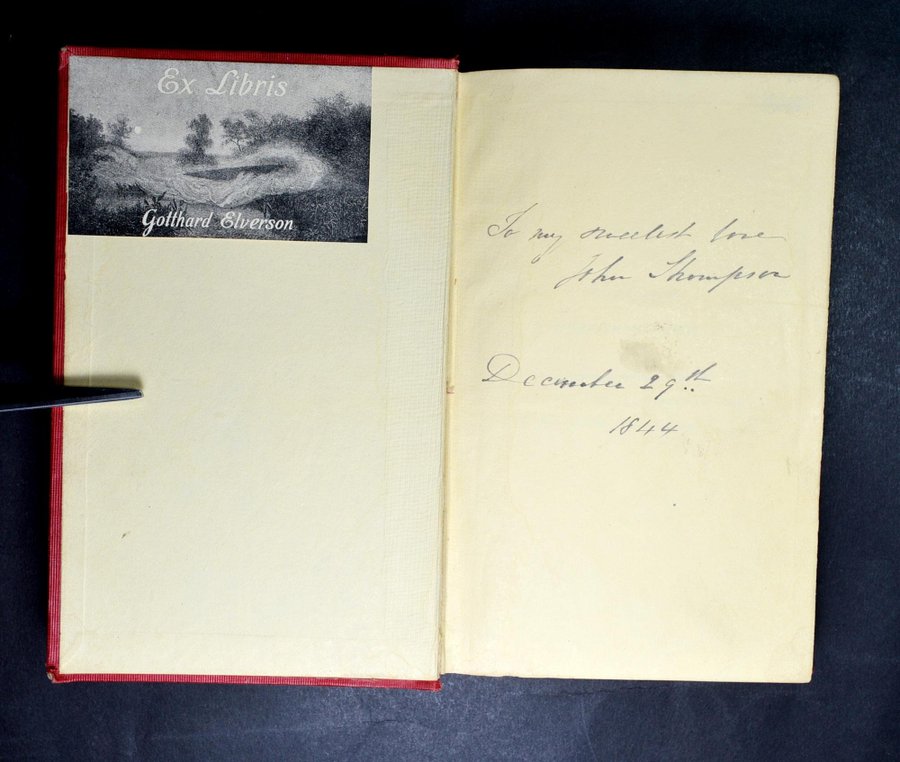 Ex Libris
Gotthard Elverson
To my sweetest love
John Thompson
December 29th
1844